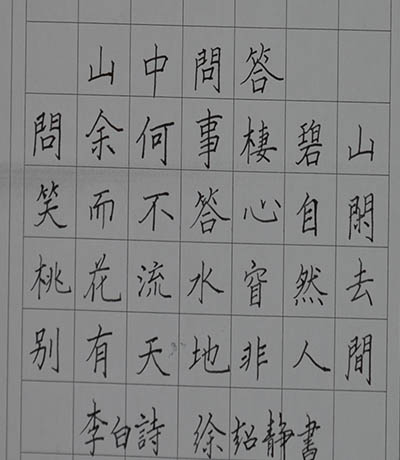 山中問答
問余何事棲碧山
笑而不答心自閑
桃花流水窅然去
别有天地非人間
李白詩 徐超静書